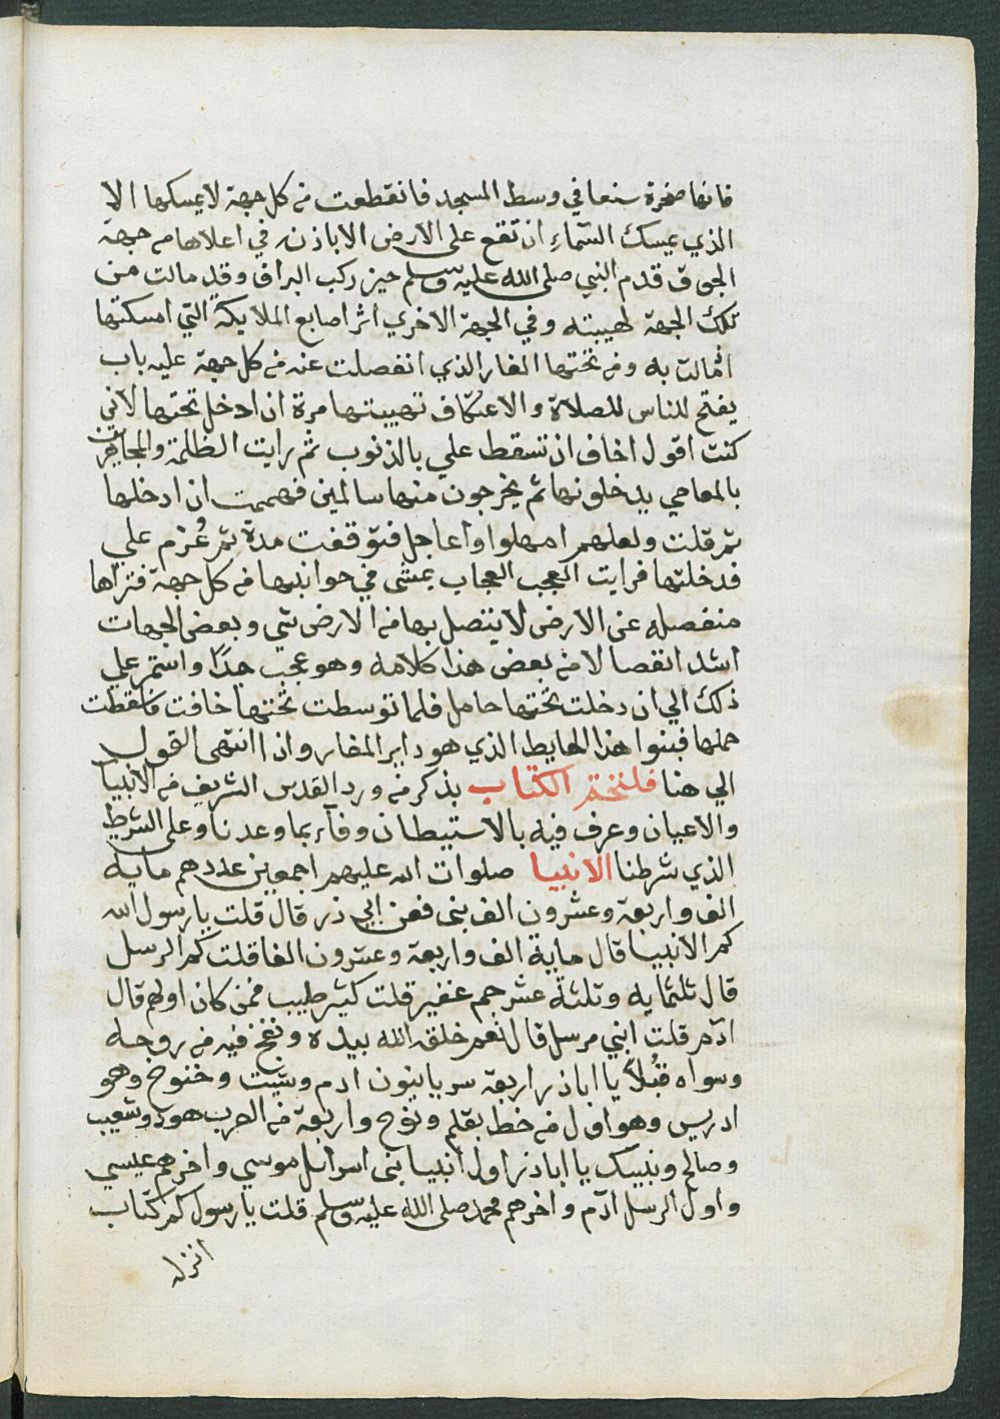 فانها صخرة سنعا في وسط المسجد فانقطعت من كل جهة لا يمسكها الا
الذي يمسك السّماءِ ان تقع على الارض الا باذن في اعلاها من جهة
الجوق قدم النبي صلى الله عليه وسلم حين ركب البراق وقد مالت من
تلك الجهة لهيبته وفي الجهة الاخري اثر اصابع الملايكة التي امسكتها
اذمالت به ومن تحتها الغار الذي انفصلت عنه من كل جهة عليه باب
يفتح للناس للصلاة والاعتكاف تهيبتها مرة ان ادخل تحتها لاني
كنت اقول اخاف ان تسقط علي بالذنوب ثم رايت الظلمة والمجاهرين
بالمعاصي يدخلونها ثم يخرجون منها سالمين فهممت ان ادخلها
ثم قلت ولعلهم امهلوا واعاجل فتوقفت مدة ثم عُزم علي
فدخلتها فرايت العجب العجاب يمشى في جوانبها من كل جهة فتراها
منفصله عن الارض لا يتصل بها من الارض شي وبعض الجهات
اشد انفصالا من بعض هذا كلامه وهو عجب جدًا واستمر علي
ذلك الي ان دخلت تحتها حامل فلما توسطت تحتها خافت فاسقطت
حملها فبنوا هذا الحايط الذي هو داير المغار واذا انتهى القول
الي هنا فلنختم الكتاب بذكر من ورد القدس الشريف من الانبيا
والاعيان وعرف فيه بالاستيطان وفآء بما وعدنا وعلى الشرط
الذي شرطنا الانبيا صلوات الله عليهم اجمعين عددهم ماية
الف واربعة وعشرون الف نبى فعن ابي ذر قال قلت يا رسول الله
كم الانبيا قال ماية الف واربعة وعشرون الفا قلت كم الرسل
قال ثلثماية وثلثة عشر جم غفير قلت كثير طيب فمن كان اولهم قال
ادم قلت انبي مرسل قال نعم خلقه الله بيده ونفخ فيه من روحه
وسواه قبُلاً يا اباذر اربعة سريانيون ادم وشيث وخنوخ وهو
ادريس وهو اول من خط بقلم ونوح واربعة من العرب هود وشعيب
وصالح ونبيك يا اباذر اول انبيا بنى اسرائل موسي واخرهم عيسي
واول الرسل ادم واخرهم محمد صلى الله عليه وسلم قلت يا رسول كم كتاب
انزله